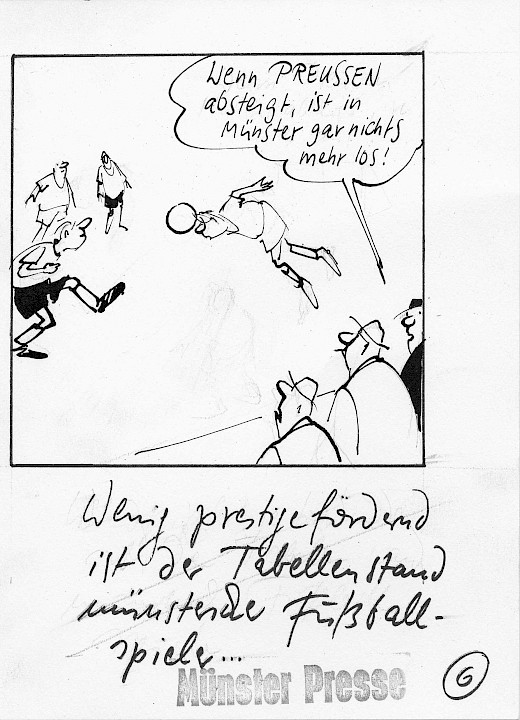 Wenn PREUSSEN
absteigt, ist in
Münster gar nichts
mehr los!
Wenig prestigefördernd
ist der Tabellenstand
münsterscher Fußball-
spieler...
Münster Presse
6